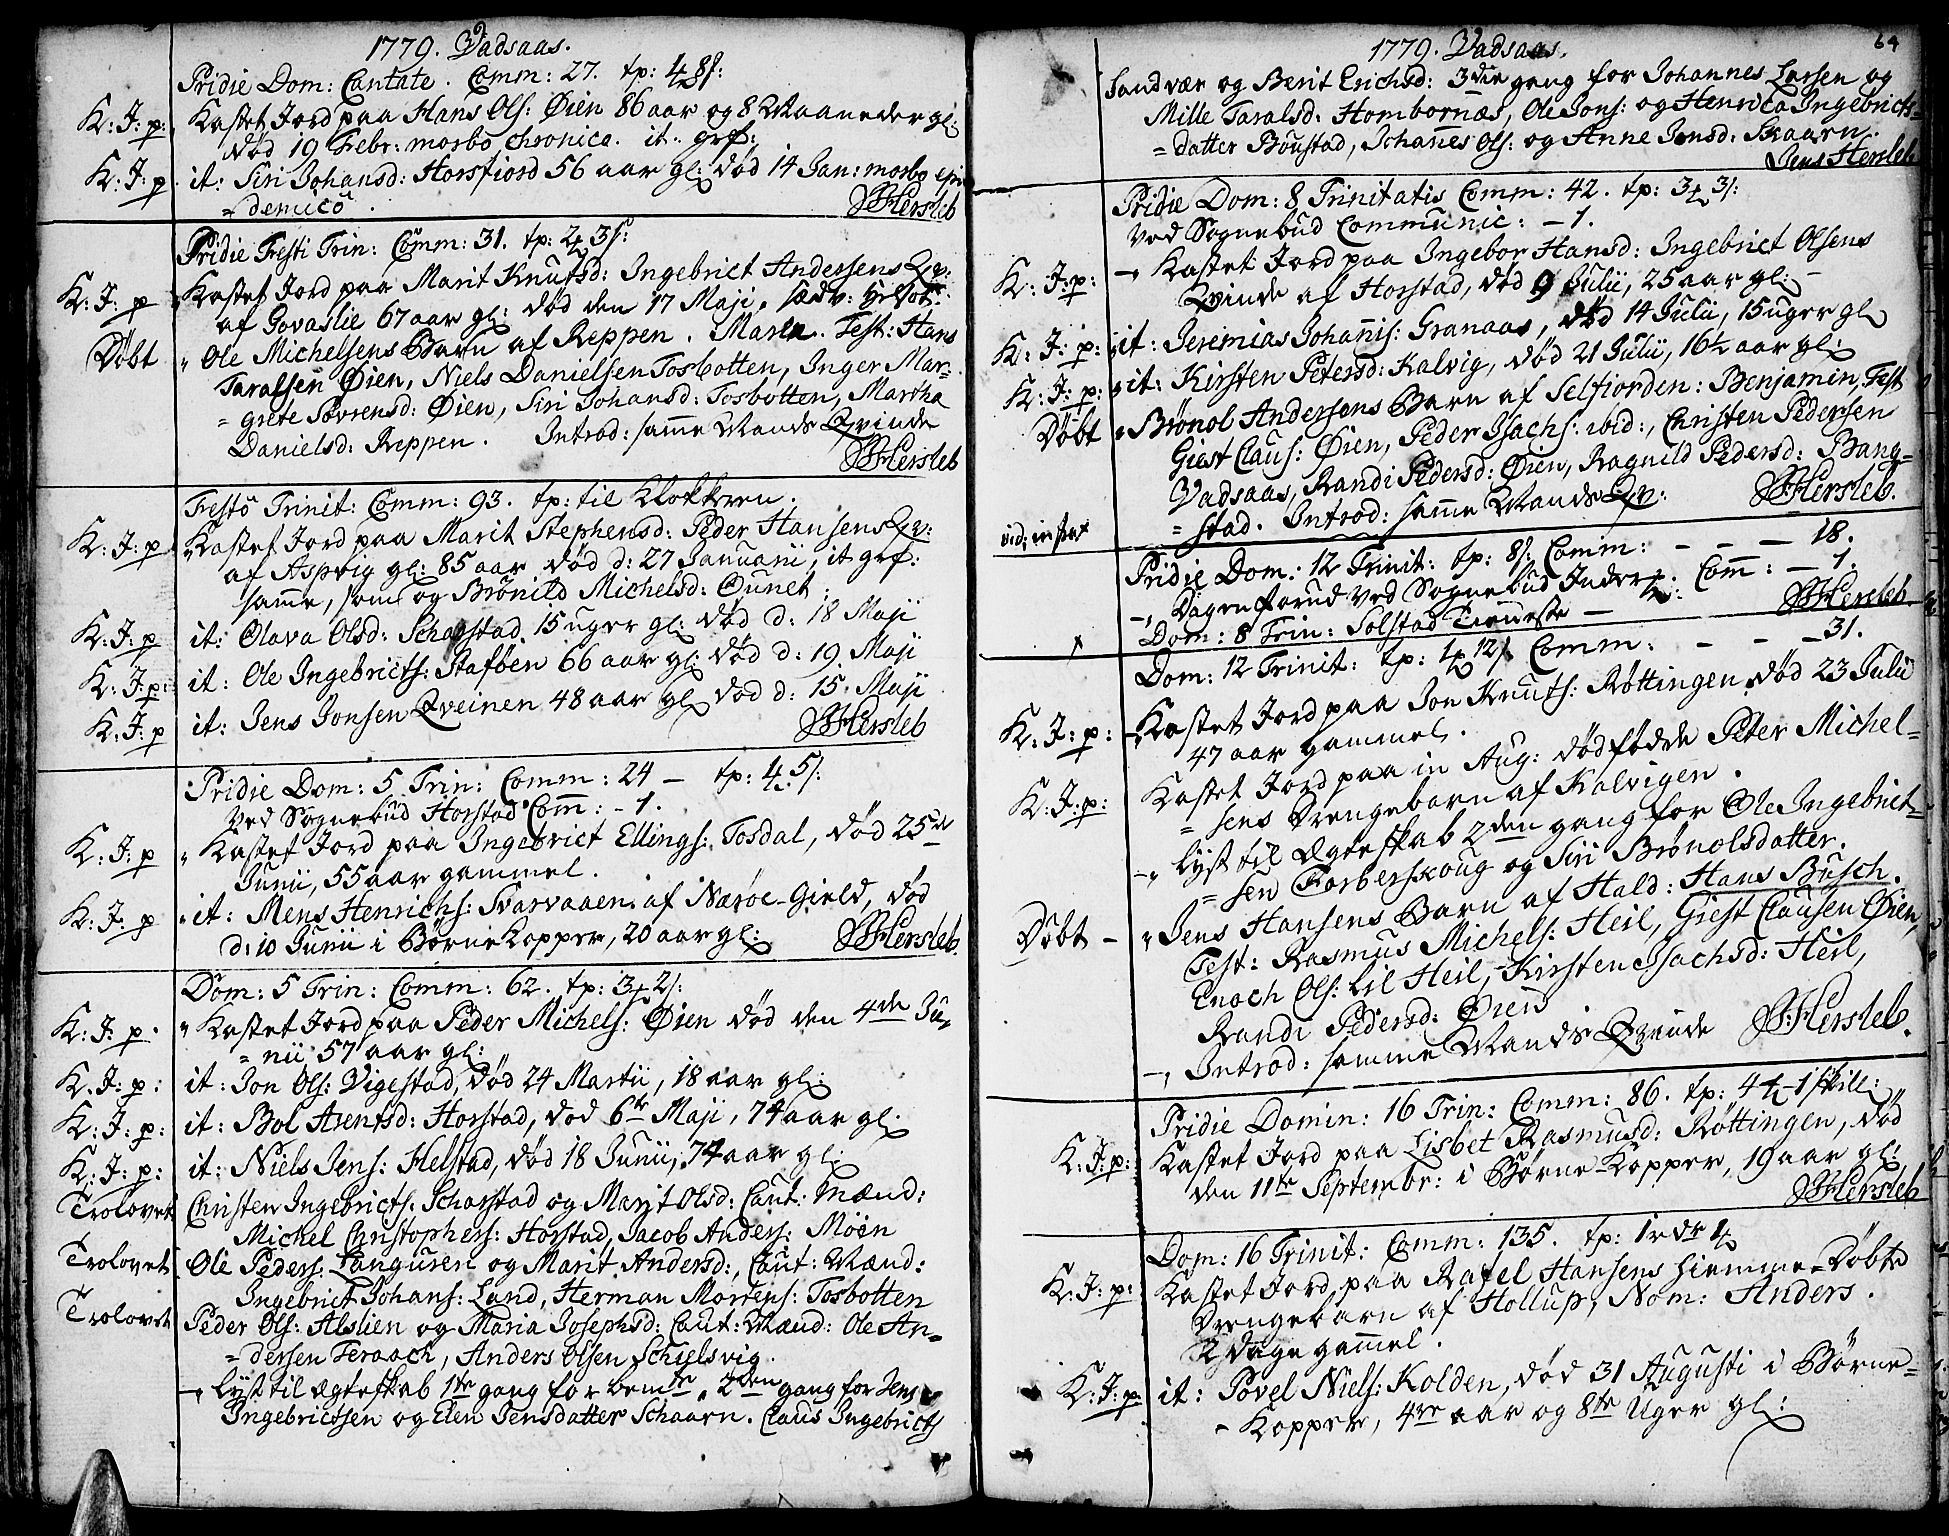 1779. Vadsaas.
Pridie Dom: Cantate. Comm: 27. tp: 4 8s:
K: J: p: Kastet Jord paa Hans Ols: Øien 86 aar og 8 Maaneder gl:
død 19 Febr: morbo chronica. it. grf:
K: J: p. it: Siri Johansd: Horsfiord 56 aar gl: død 14 Jan: morbo epi
=demico.
JHersleb
Pridie Festi Trin: Comm: 31. tp: 2 3s:
K: J: p Kastet Jord paa Marit Knutsd: Ingebrict Andersens Qv:
af Govaslie 67 aar gl: død den 17 Maji.
Døbt " Ole Michelsens Barn af Reppen. Maren. Test: Hans
Taralsen Øien, Niels Danielsen Tosbotten, Inger Mar=
=grete Sørensd: Øien, Siri Johansd: Tosbotten, Martha
Danielsd: Reppen. Introd: samme Mands Qvinde
JHersleb
Festo Trinit: Comm: 93. tp: til Klokkeren.
K: J: p Kastet Jord paa Marit Stephensd: Peder Hansens Qv:
af Aspvig gl: 85 aar død d: 27 Januarii, it grf:
samme, som og Brønild Michelsd: Ounet.
K: J: p it: Olava Olsd: Scharstad 15 uger gl: død d: 18 Maji
K: J: p: it: Ole Ingebricts: Staføen 66 aar gl: død d: 19. Maji
K: J: p it: Jens Jonsen Qveinen 48 aar gl: død d: 15. Maji
JHersleb
Pridie Dom: 5 Trin: Comm: 24 – tp: 4 5s:
Ved Sognebud Horstad Comm: – 1.
K: J: p " Kastet Jord paa Ingebrict Ellings: Tosdal, død 25de
Junii, 55 aar gammel.
K: J: p it: Mens Henrichs: Svarvaaen af Nærøe-Gield, død
d: 10 Junii i BørneKopper, 20 aar gl:
JHersleb.
Dom: 5 Trin: Comm: 62. tp: 3 2s:
K: J: p. " Kastet Jord paa Peder Michels: Øien død den 4de Ju=
=nii 57 aar gl:
K: J: p: it: Jon Ols: Vigestad, død 24 Martii, 18 aar gl:
K: J: p: it: Bol Arentsd: Horstad, død 6te Maji, 74 aar gl:
K: J: p: it: Niels Jens: Helstad, død 18 Junii, 74 aar gl:
Trolovet Christen Ingebricts: Scharstad og Marit Olsd: Caut: Mænd:
Michel Christophers: Horstad, Jacob Anders: Møen
Trolovet Ole Peders: Languren og Marit Andersd:, Caut: Mænd:
Ingebrict Johans: Lund, Herman Mortens: Tosbotten
Trolovet Peder Ols: Alslien og Maria Josephsd: Caut: Mænd: Ole An=
=dersen Teraach, Anders Olsen Schielsvig.
–, Lyst til Ægteskab 1te gang for bemte, 2den gang for Jens
Ingebrictsen og Elen Jensdatter Schaarn. Claus Ingebricts
1779. Vadsaas.
64
Sandvær og Berit Erichsd: 3die gang for Johannes Larsen og
Mille Taralsd: Hombornæs, Ole Jons: og Henrica Ingebricts=
=datter Boustad, Johannes Ols: og Anne Jonsd: Skaarn.
Jens Hersleb
Pridie Dom: 8 Trinitatis Comm: 42. tp: 3 3s:
Ved Sognebud Communic: – 1.
K: J: p: –, Kastet Jord paa Ingebor Hansd: Ingebrict Olsens
Qvinde af Horstad, død 9 Julii, 25 aar gl: –
K: J: p: it: Jeremias Johannis: Granaas, død 14 Julii, 15 uger gl
K: J: p: it: Kirsten Petersd: Kalvig, død 21 Julii, 16½ aar gl:
Døbt " Brønol Andersens Barn af Selfiorden: Benjamin, Test
Giest Claus: Øien, Peder Isachs: ibid:, Christen Pedersen
Vadsaas, Randi Pedersd: Øien, Ragnild Pedersd: Bang=
=stad. Introd: samme Mands Qv:
JHersleb.
Pridie Dom: 12 Trinit: tp: 8s: Comm: – – – 18.
–, Dagen forud ved Sognebud Inder Comm: – 1.
JHersleb
Dom: 8 Trin: Solstad Tieneste –
Dom: 12 Trinit: tp: 4 12s Comm: – – –31.
K: J: p: –, Kastet Jord paa Jon Knuts: Røttingen død 23 Julii
47 aar gammel.
K: J: p: Kastet Jord paa in Aug: dødfødde Peter Michel=
=sens Drengebarn af Kalvigen.
–, Lyst til Ægteskab 2den gang for Ole Ingebrict=
=sen Torberskoug og Siri Brønolsdatter.
Døbt – " Jens Hansens Barn af Hald: Hans Busch.
Test: Rasmus Michels: Heil, Giest Clausen Øien,
Enoch Ols: Lil Heil, Kirsten Isachsd: Heil,
Randi Pedersd: Øien
–, Introd: samme Mands Qvinde
JHersleb.
Pridie Domin: 16 Trin: Comm: 86. tp: 4 – 1 skill:
K: J: p: Kastet Jord paa Lisbet Rasmusd: Røttingen, død
den 11te Septembr: i Børne-Kopper, 19 aar gl:
JHersleb
Dom: 16 Trinit: Comm: 135. tp: 1 rdr 4
K: J: p: Kastet Jord paa Rafel Hansens Hiemme=Døbte
Drengebarn af Hollup, Nom: Anders.
2 Dage gammel.
K: J: p: it: Povel Niels: Kolden, død 31 Augusti i Børne=
–Kopper, 4re aar og 8te Uger gl: